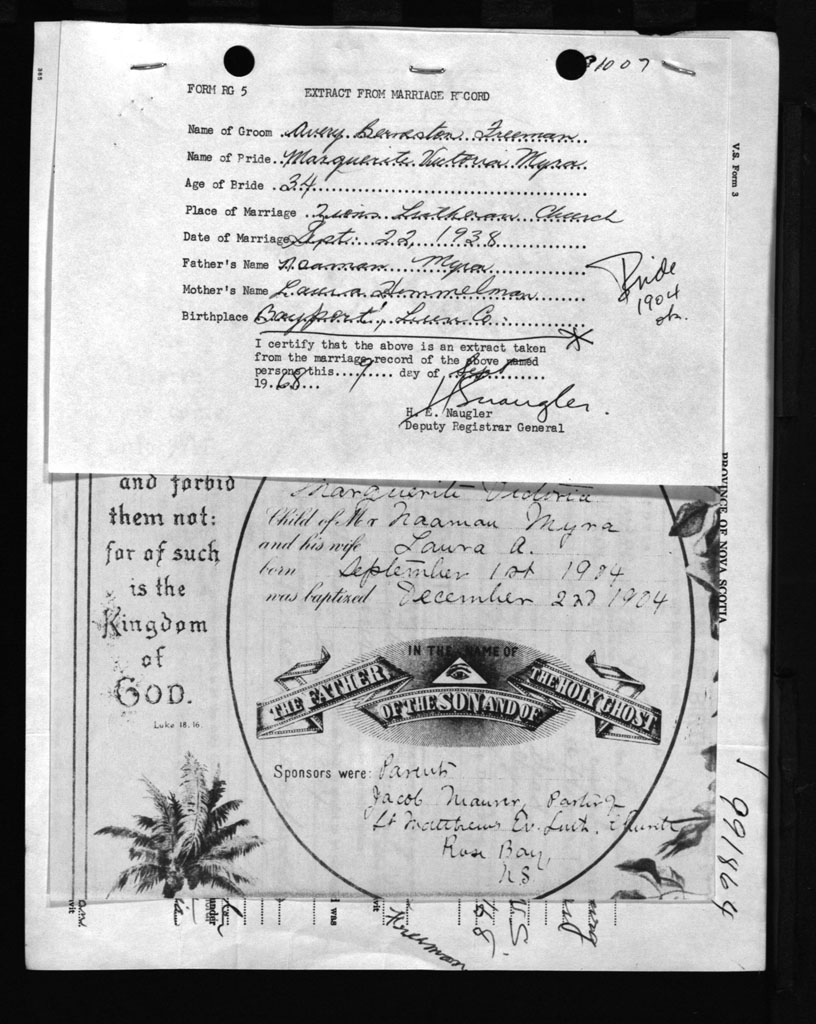 91007
FORM RG 5 EXTRACT FROM MARRIAGE RECORD
Name of Groom Avery Freeman
Name of Pride Marguerite Victoria Myra
Age of Bride 34
Place of Marriage Zions Lutheran Church
Date of Marriage Sept. 22, 1938
Father's Name Naaman Myra
Mother's Name Laura Himmelman
Birthplace Bayport, Lun. Co.
Bride
1904
ok.
I certify that the above is an extract taken
from the marriage record of the above named
persons this 9 day of Sept
1968
H. E. Naugler
Deputy Registrar General
V.S. Form 3
PROVINCE OF NOVA SCOTIA
991864
and forbid
them not:
for of such
is the
Kingdom
of
GOD.
Luke 18.16.
Marguerite Victoria
Child of Mr Naaman Myra
and his wife Laura A.
born September 1st 1904
was baptized December 2nd 1904
IN THE NAME OF
THE FATHER OF THE SON AND OF THE HOLY GHOST
Sponsors were: Parents
Jacob Maurer, Pastor of
St Matthews Ev. Luth. Church
Rose Bay,
N.S
I was
Freeman
N.S.